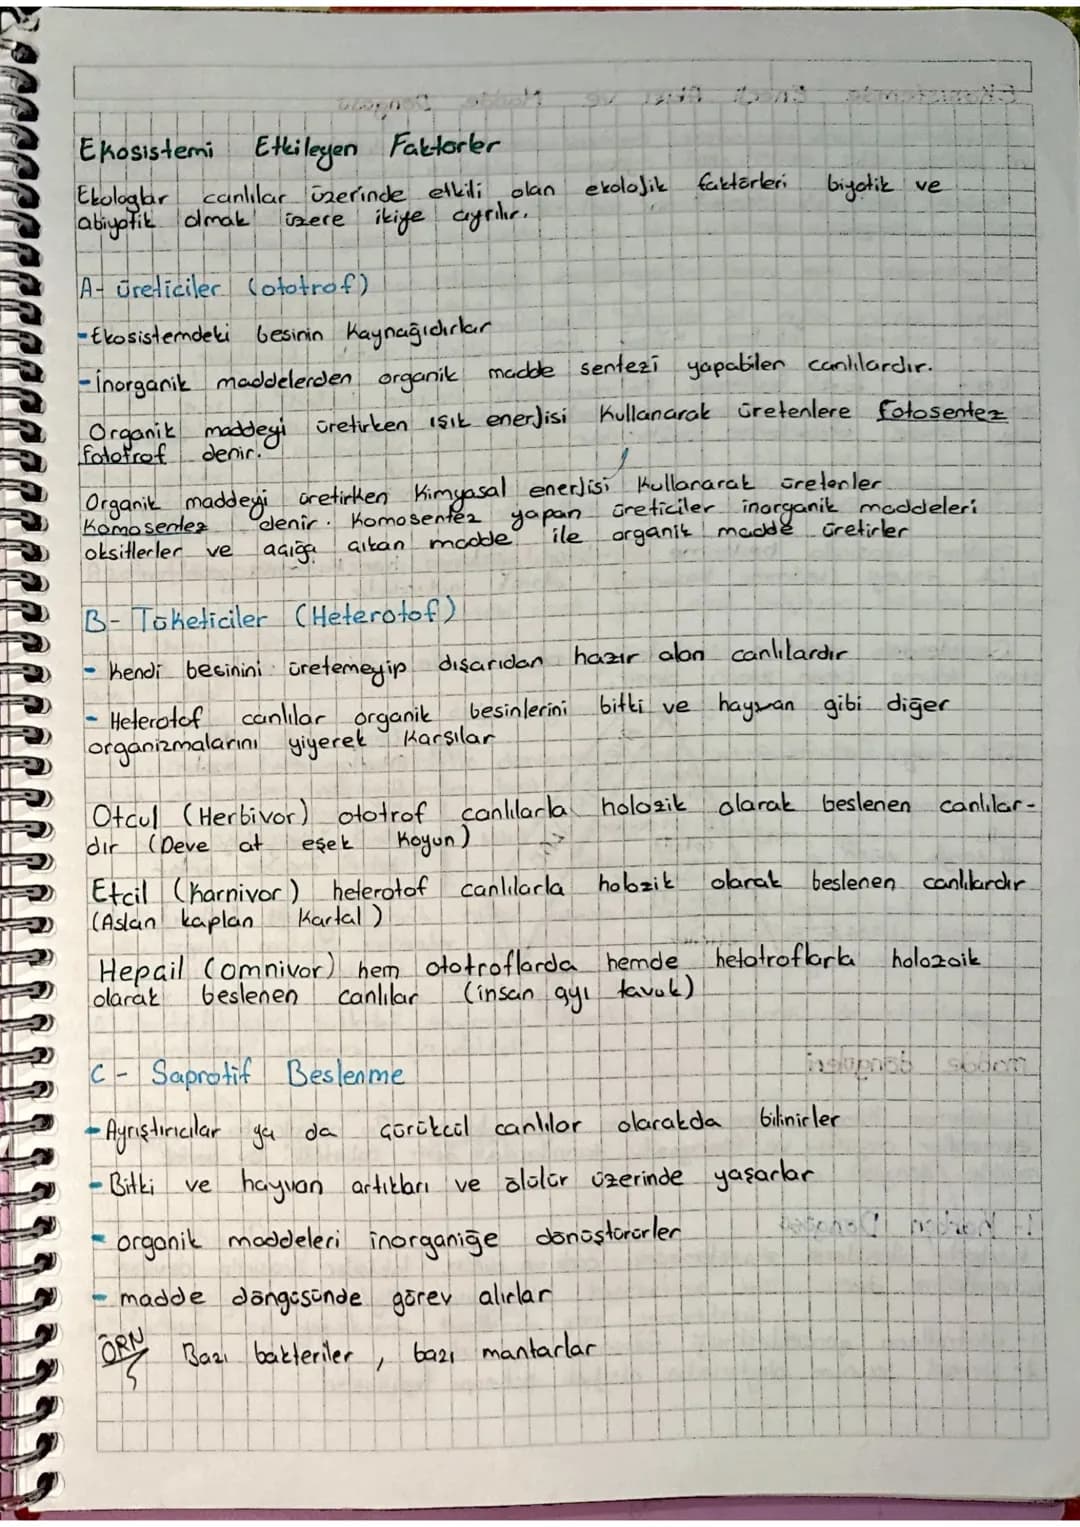 Ekosistemi Etkileyen Faktörler
Ekologlar canlılar üzerinde etkili olan ekolojik faktörleri biyotik ve
abiyotik olmak üzere ikiye ayrılır.
A- üreticiler (ototrof)
-Ekosistemdeki besinin kaynağıdırlar
-inorganik maddelerden organik madde sentezi yapabilen canlılardır.
Organik maddeyi üretirken ışık enerjisi kullanarak üretenlere fotosentez
fototrof denir.
Organik maddeyi üretirken kimyasal enerjisi kullanarak üretenler
Komosentez denir. Komosentez yapan üreticiler inorganik maddeleri
oksitlerler ve açığa çıkan madde ile organik madde üretirler
B- Tüketiciler (Heterotof)
- kendi besinini üretemeyip dışarıdan hazır alan canlılardır
- Heterotof canlılar organik besinlerini bitki ve hayvan gibi diğer
organizmalarını yiyerek karşılar
Otçul (Herbivor) ototrof canlılarla holozik olarak beslenen canlılar-
dır (Deve at eşek koyun)
Etcil (karnivor) heterotof canlılarla holozik olarak beslenen canlılardır
(Aslan kaplan kartal)
Hepçil (omnivor) hem ototroflarda hemde hetotroflarla holozoik
olarak beslenen canlılar (insan ayı tavuk)
C- Saprotif Beslenme
-Ayrıştırıcılar ya da çürükcül canlılar olarakda bilinirler
-Bitki ve hayvan artıkları ve ölülür üzerinde yaşarlar
-organik maddeleri inorganiğe dönüştürürler
-madde döngüsünde görev alırlar
ÖRN Bazı bakteriler, bazı mantarlar